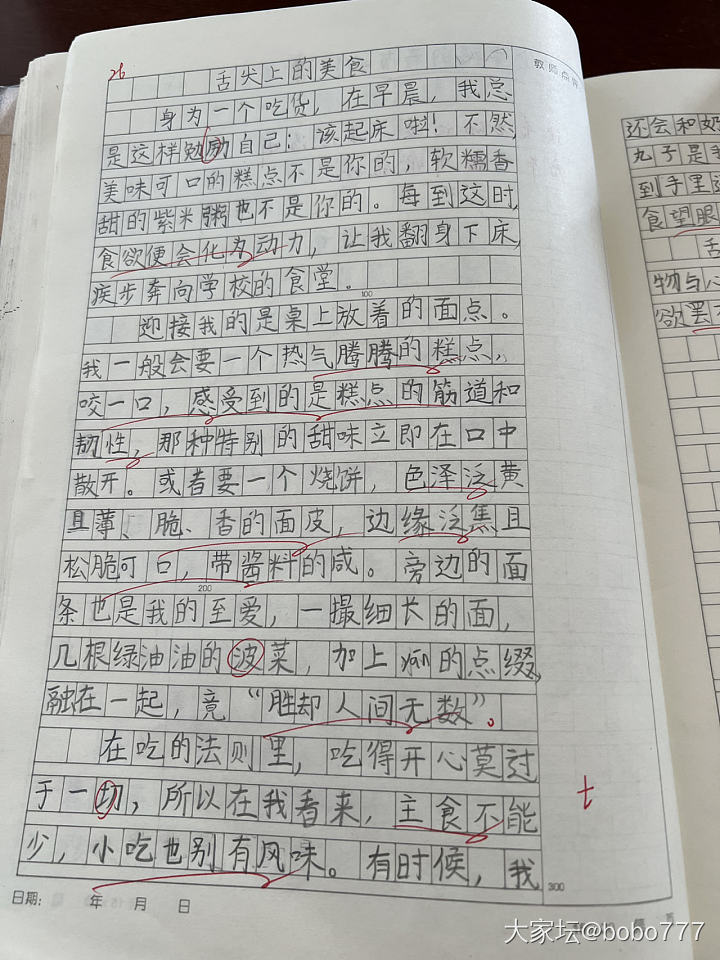 26
舌尖上的美食
教师点
身为一个吃货，在早晨，我总
是这样勉励自己：该起床啦！不然
美味可口的糕点不是你的，软糯香
甜的紫米粥也不是你的。每到这时，
食欲便会化为动力，让我翻身下床，
疾步奔向学校的食堂。
100
迎接我的是桌上放着的面点。
我一般会要一个热气腾腾的糕点，
咬一口，感受到的是糕点的筋道和
韧性，那种特别的甜味立即在口中
散开。或者要一个烧饼，色泽泛黄
且薄、脆、香的面皮，边缘泛焦且
松脆可口，带酱料的咸。旁边的面
200
条也是我的至爱，一撮细长的面，
几根绿油油的波菜，加上的点缀，
融在一起，竟“胜却人间无数”。
在吃的法则里，吃得开心莫过
于一切，所以在我看来，主食不能
少，小吃也别有风味。有时候，我
300
日期： 年 月 日
还会和奶
丸子是我
到手里
食望眼
舌
物与心
欲罢不
大家坛@bobo777